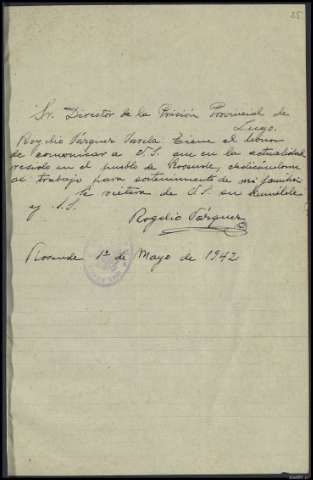 25
Sr. Director de la Prisión Provincial de
Lugo.
Rogelio Vázquez Varela tiene el honor
de comunicar a V.S. que en la actualidad
resido en el pueblo de Rosende, dedicándome
al trabajo para sostenimiento de mi familia
Se reitera de V.S. su humilde
y S.S.
Rogelio Vázquez
Rosende 1º de Mayo de 1942